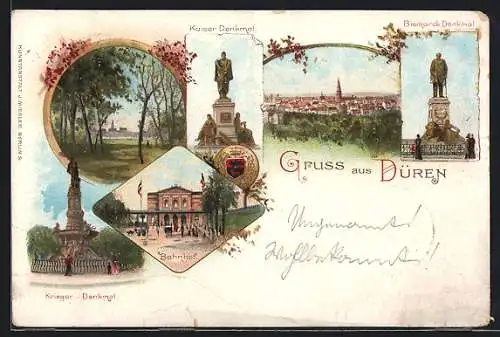 Kaiser Denkmal.
Bismarck Denkmal
KUNSTANSTALT J. MIESLER, BERLIN S.
Gruss aus Düren
Ungenannt!
Wohlbekannt!!
Bahnhof
Krieger-Denkmal